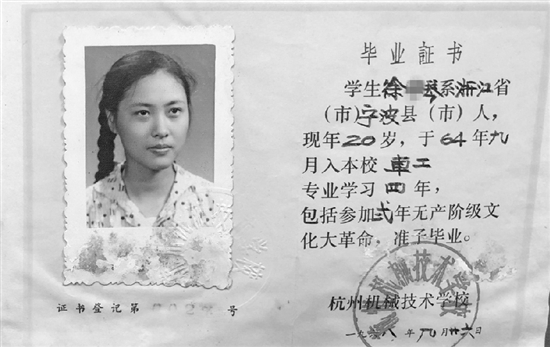 毕业証书
学生徐系浙江省
（市）宁波县（市）人，
现年20岁，于64年九
月入本校 車工
专业学习四年，
包括参加弍年无产阶级文
化大革命，准予毕业。
杭州机械技术学校
一九六八年九月廿六日
证书登记第 号
机械技术学校